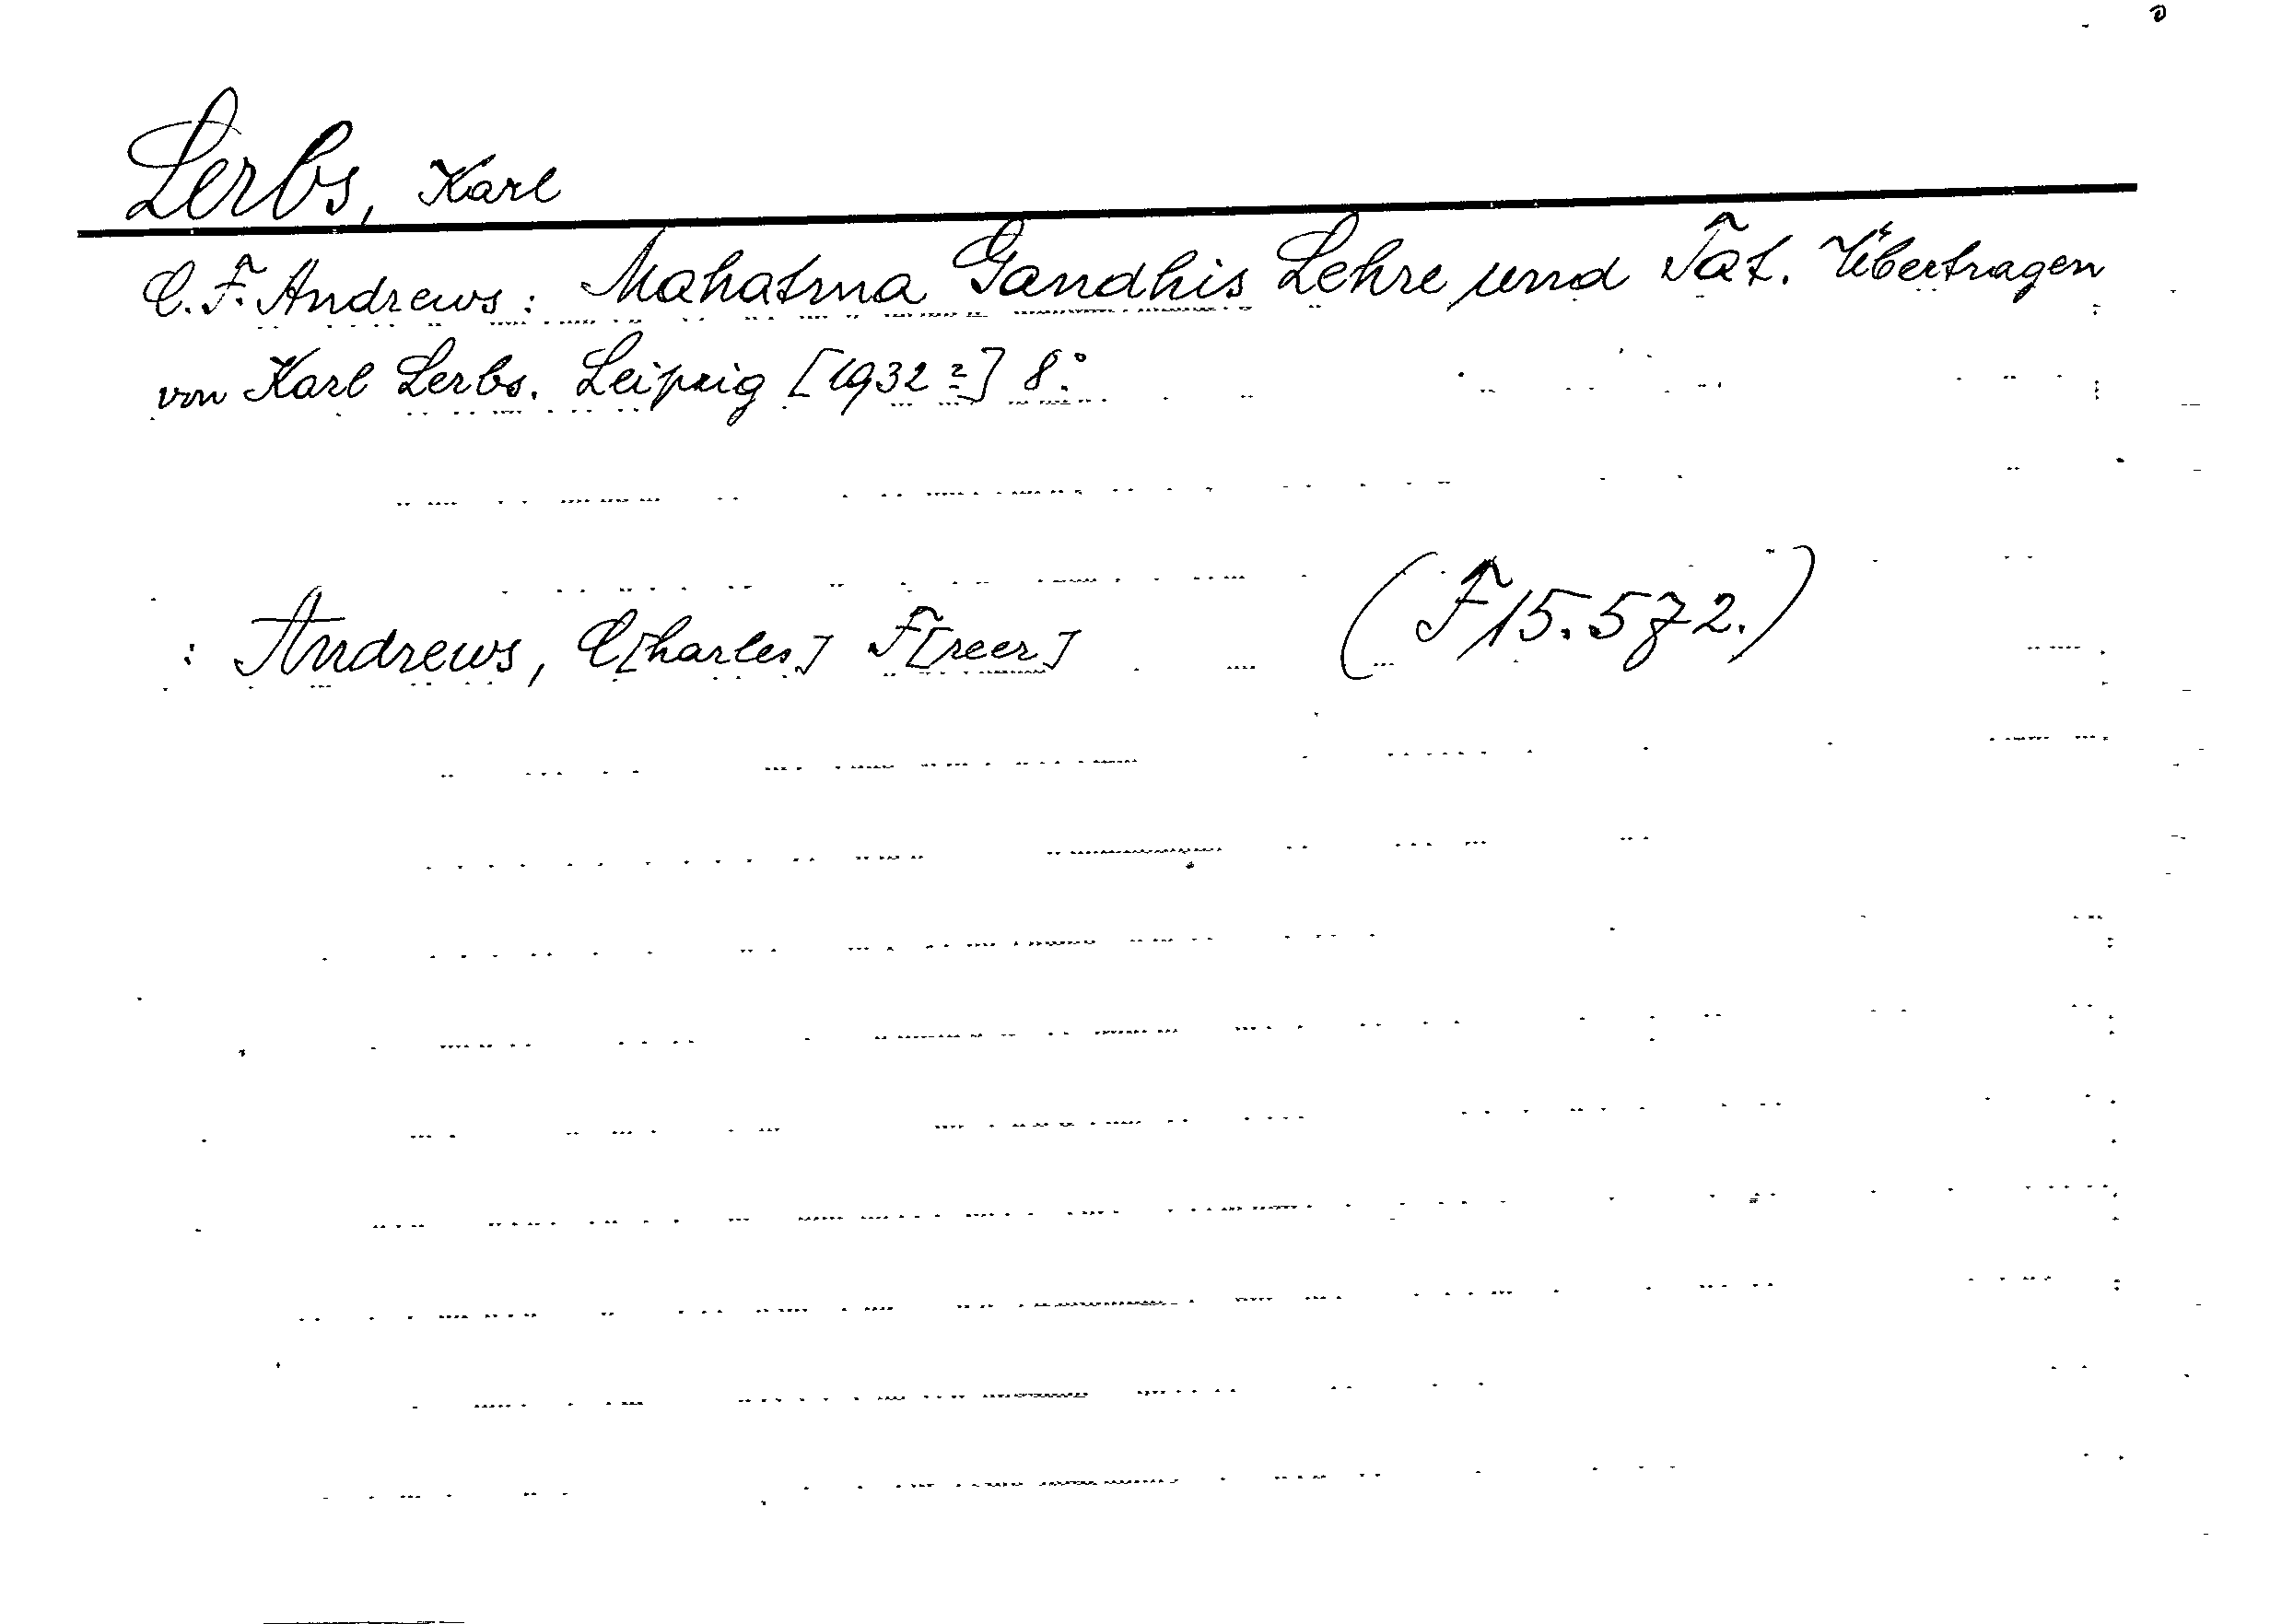 Lerbs, Karl
C. F. Andrews: Mahatma Gandhis Lehre und Tat. Übertragen
von Karl Lerbs. Leipzig [1932?] 8°.
: Andrews, C[harles] F[reer] (F 15.572.)